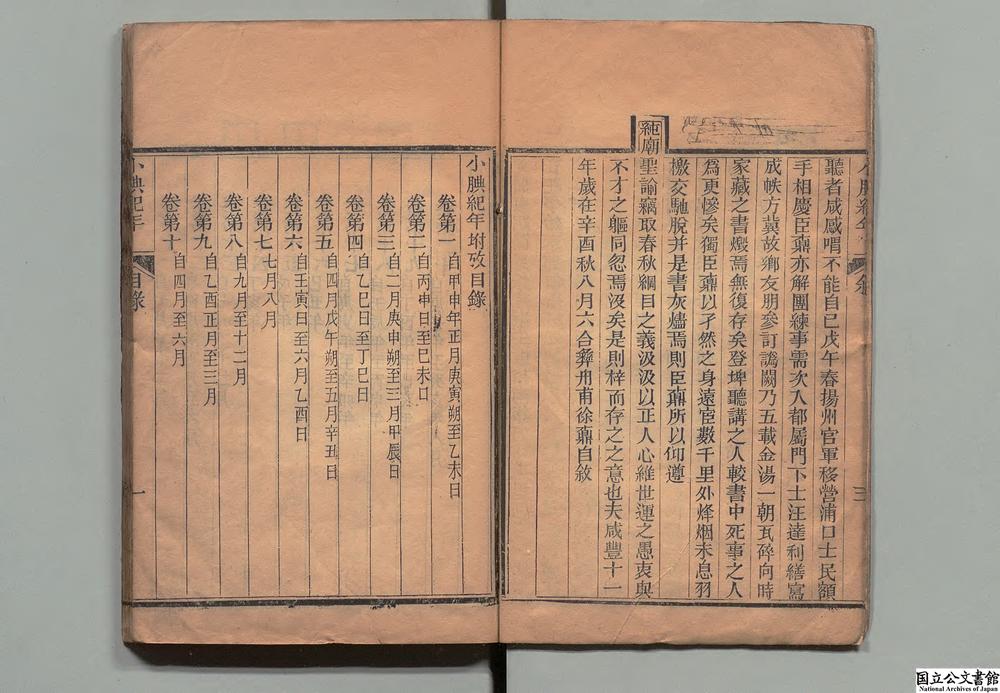 聽者咸感唱不能自已戊午春揚州官軍移營浦口士民額
手相慶臣鼒亦解團練事需次入都屬門下士汪達利繕寫
成帙方冀故鄉友朋參訂譌闕乃五載金湯一朝瓦碎向時
家藏之書燬焉無復存矣登埤聽講之人較書中死事之人
爲更慘矣獨臣鼒以孑然之身遠宦數千里外烽烟未息羽
檄交馳脫并是書灰燼焉則臣鼒所以仰遵
純廟
聖諭竊取春秋綱目之義汲汲以正人心維世運之愚衷與
不才之軀同忽焉沒矣是則梓而存之之意也夫咸豐十一
年歲在辛酉秋八月六合彝舟甫徐鼒自敘
三
小腆紀年坿攷目錄
卷第一 自甲申年正月庚寅朔至乙未日
卷第二 自丙申日至巳未日
卷第三 自二月庚申朔至三月甲辰日
卷第四 自乙巳日至丁巳日
卷第五 自四月戊午朔至五月辛丑日
卷第六 自壬寅日至六月乙酉日
卷第七 七月八月
卷第八 自九月至十二月
卷第九 自乙酉正月至三月
卷第十 自四月至六月
小腆紀年
目錄
一
国立公文書館
National Archives of Japan